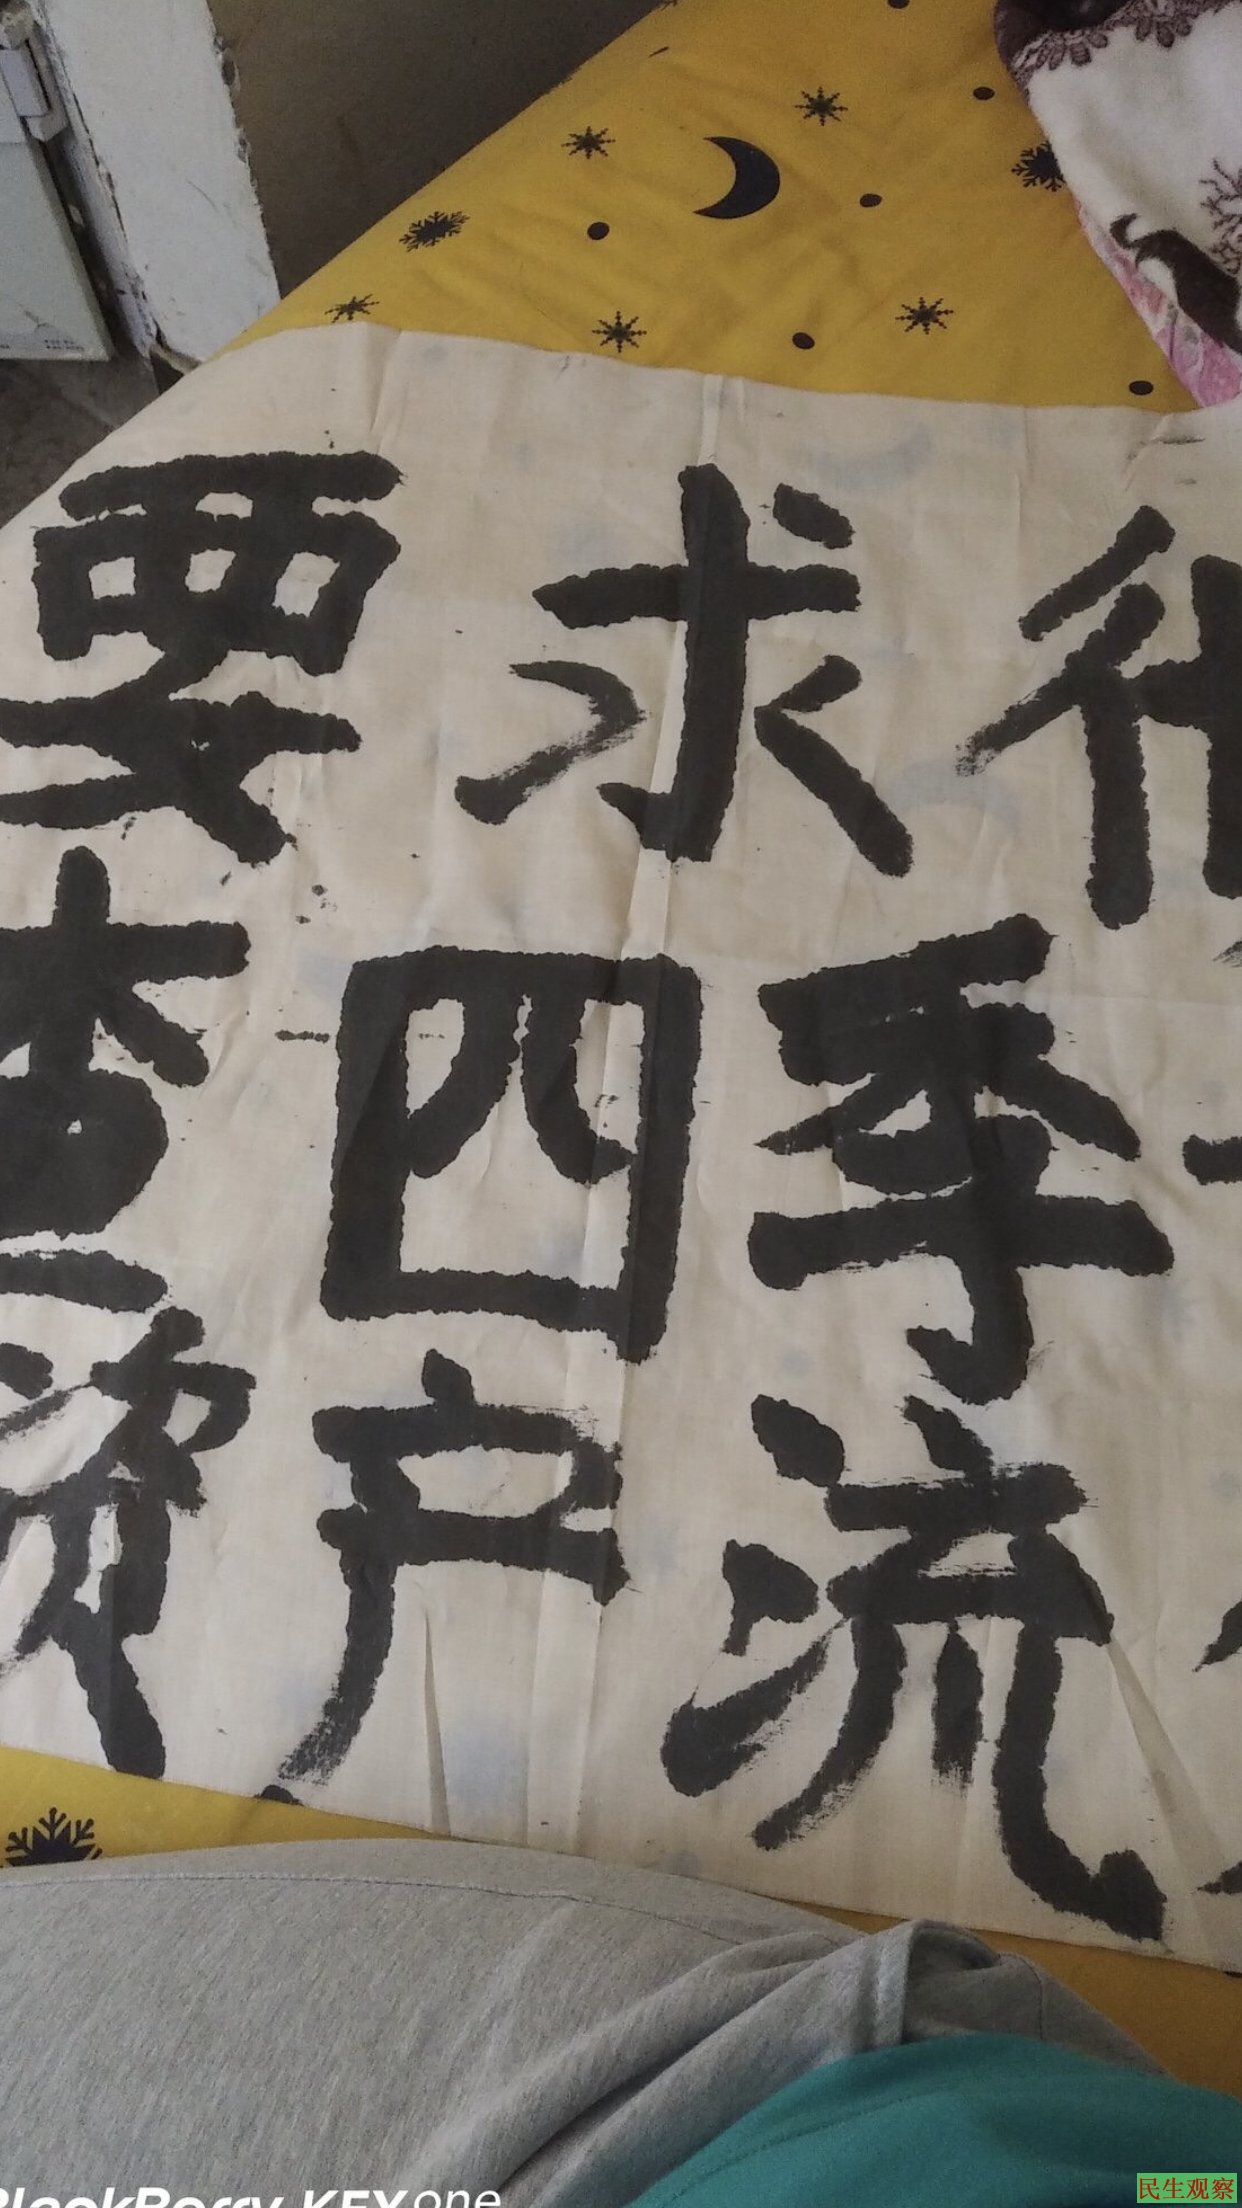 要求
查四季
户流
BlackBerry KEYone
民生观察